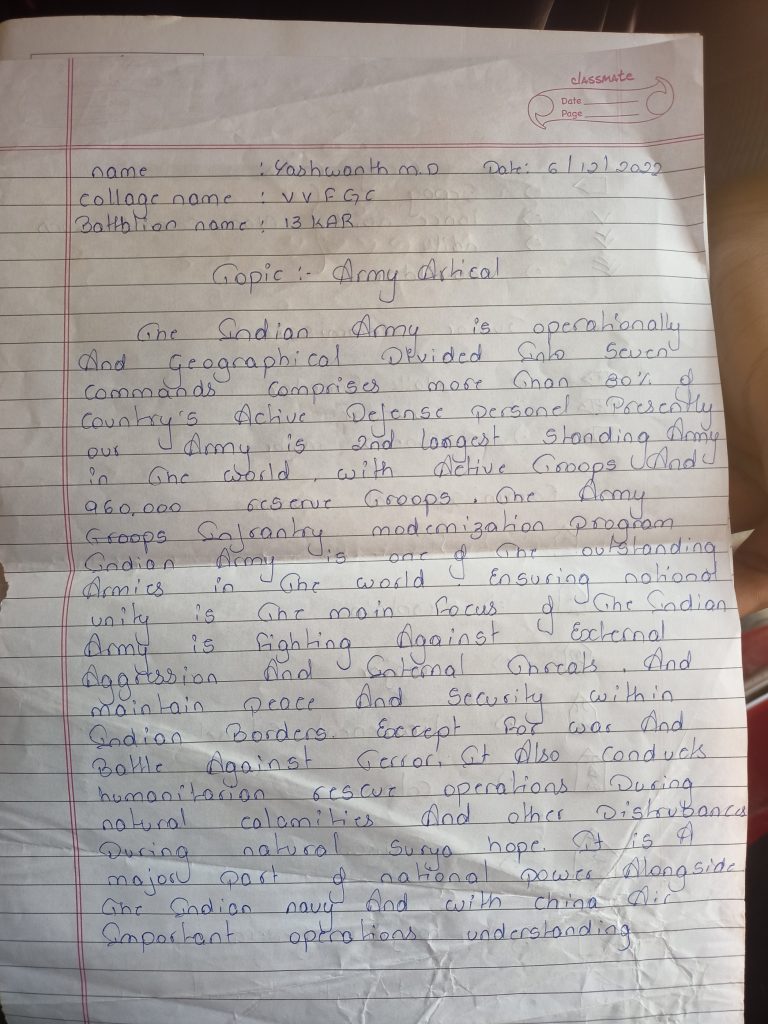 classmate
Date
Page
name : Yashwanth M.D Date: 6/12/2022
collage name : V V F G C
Battblion name : 13 KAR
Topic :- Army Artical
The Indian Army is operationally
And Geographical Devided Into Seven
commands comprises more than 80% of
country's Active Defense personel Presently
our Army is 2nd largest standing Army
in the world, with Active Groops And
960,000 reserve Groops. The Army
Groops Infrantry modernization program
Indian Army is one of the outstanding
Armies in the world Ensuring national
unity is the main focus of the Indian
Army is fighting Against External
Aggression And Internal threats. And
maintain peace And Security within
Indian Borders. Except for war And
Battle Against Terror, It Also conducts
humanitarian rescue operations During
natural calamities And other Distrubances
During natural Surya hope. It is A
major part of national power Alongside
the Indian navy And with china Air
Important operations understanding